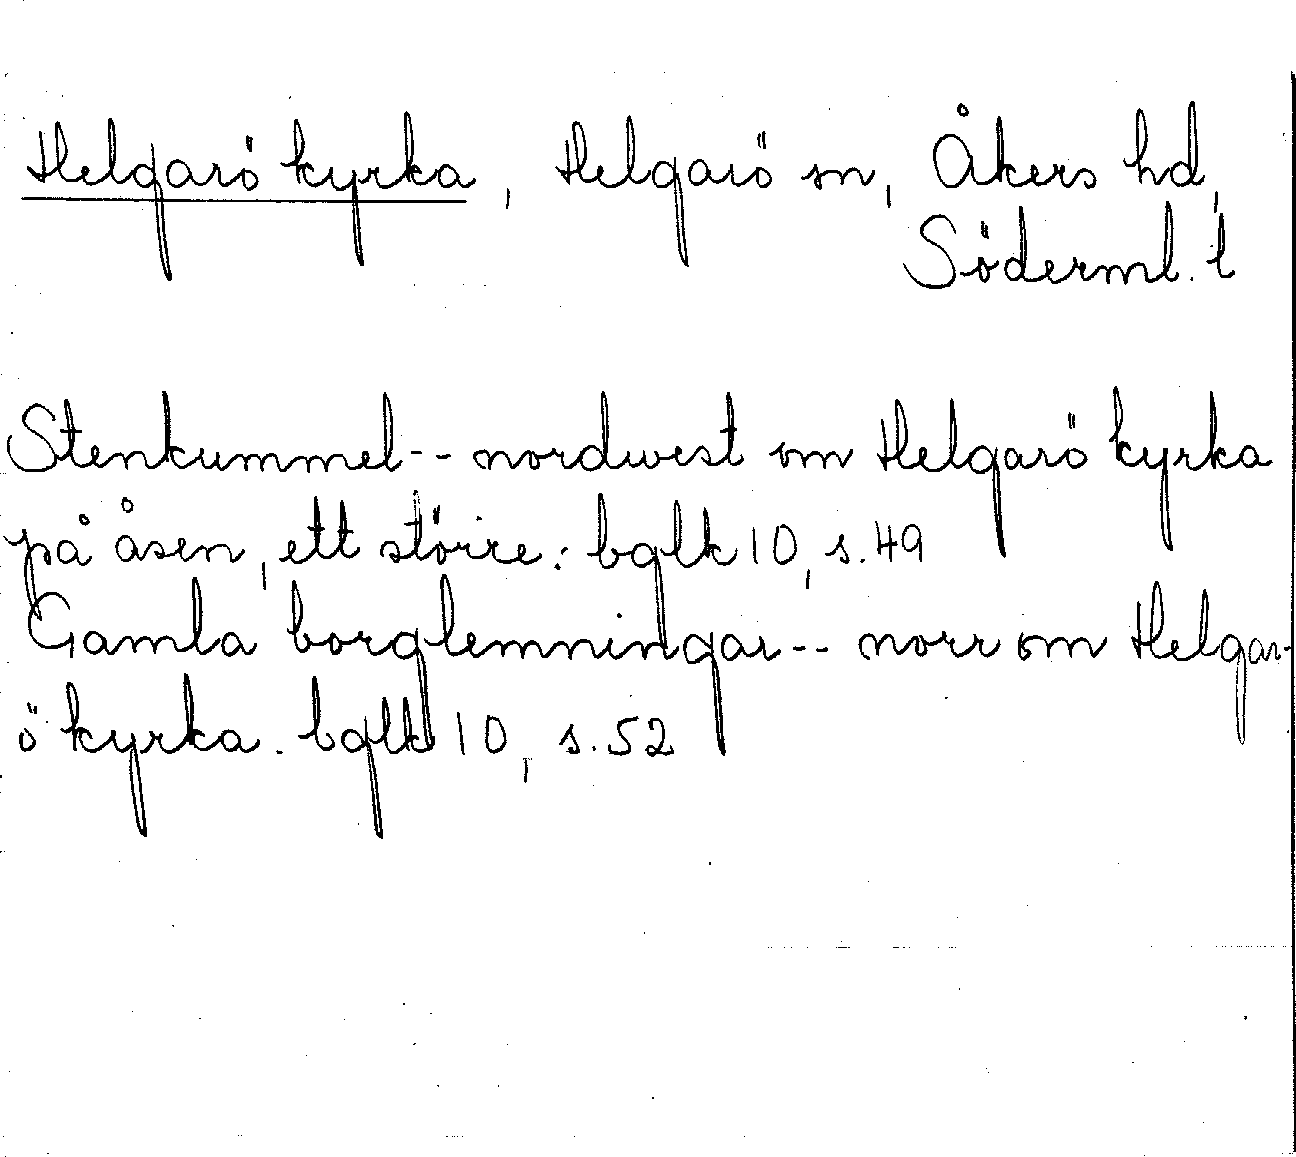 Helgarö kyrka, Helgarö sn, Åkers hd,
Söderml. l
Stenkummel-- nordwest om Helgarö kyrka
på åsen, ett större: bglk 10, s. 49
Gamla borglemningar-- norr om Helgar-
ö kyrka. bglk 10, s. 52